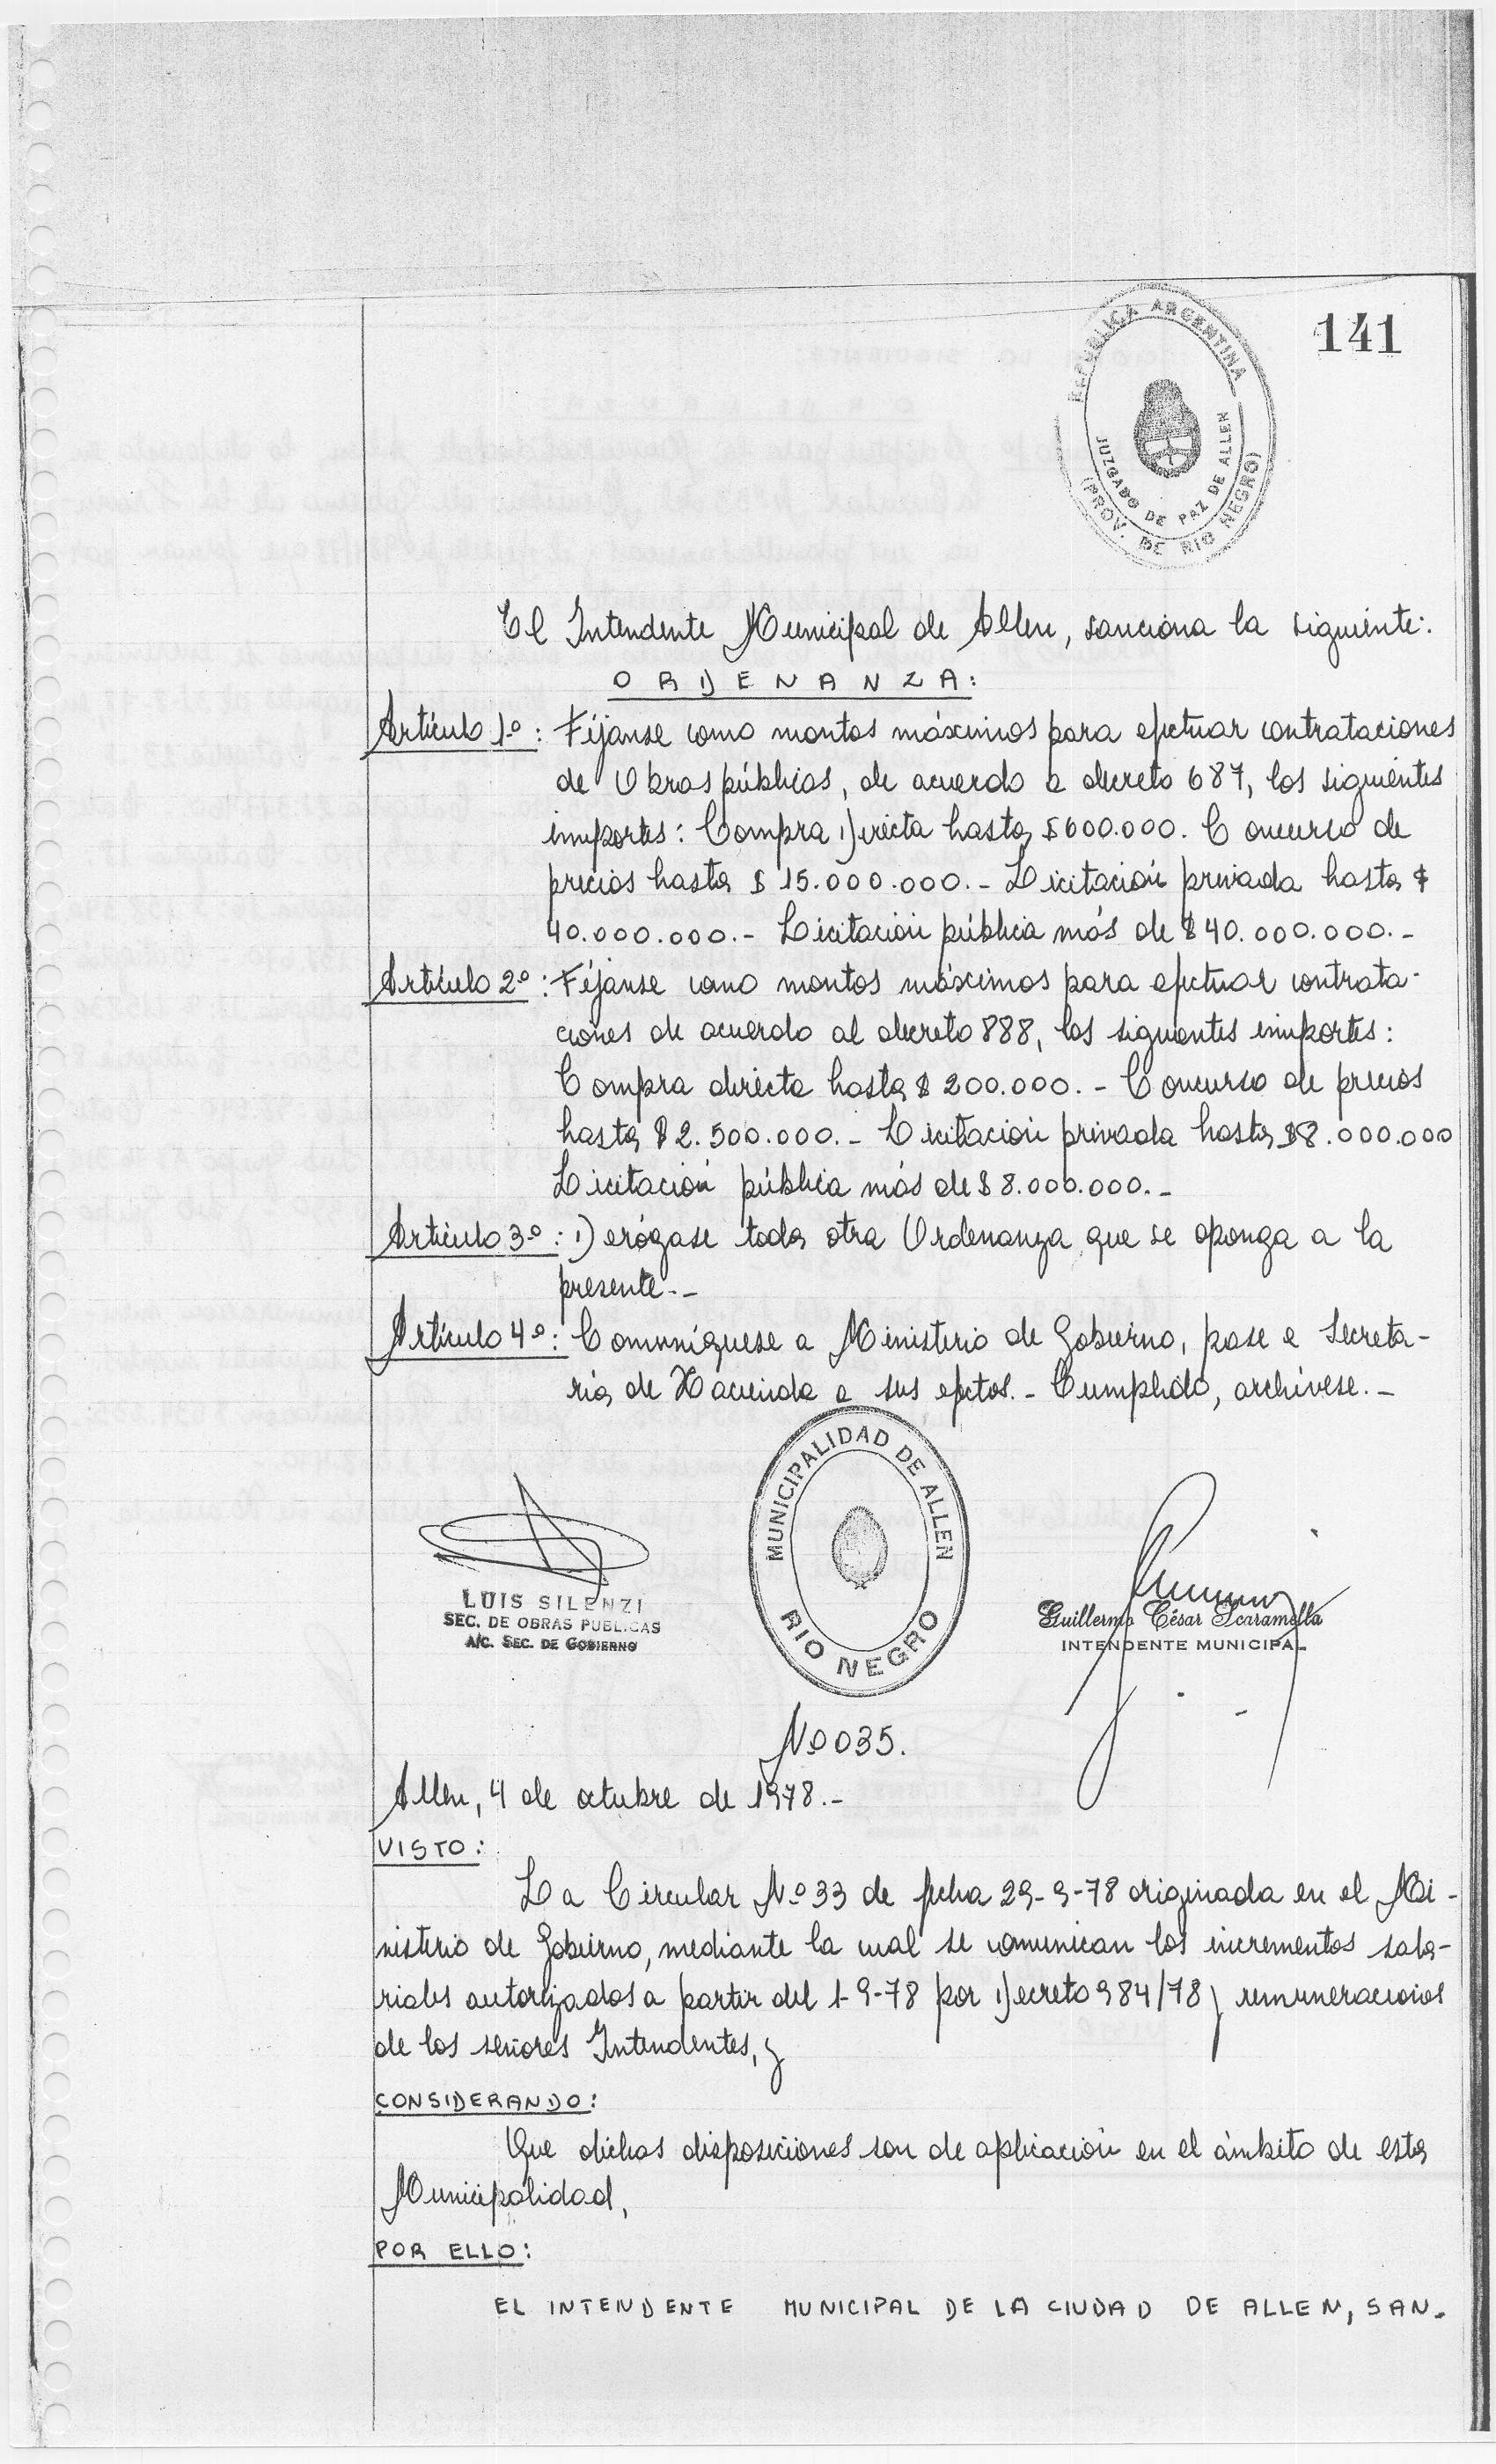 141
REPUBLICA ARGENTINA
JUZGADO DE PAZ DE ALLEN
(PROV. DE RIO NEGRO)
El Intendente Municipal de Allen, sanciona la siguiente:
ORDENANZA:
Artículo 1º: Fíjanse como montos máximos para efectuar contrataciones
de Obras públicas, de acuerdo a decreto 687, los siguientes
importes: Compra Directa hasta $600.000. Concurso de
precios hasta $ 15.000.000.- Licitación privada hasta $
40.000.000.- Licitación pública más de $ 40.000.000.-
Artículo 2º: Fíjanse como montos máximos para efectuar contrata-
ciones de acuerdo al decreto 888, los siguientes importes:
Compra directa hasta $ 200.000.- Concurso de precios
hasta $ 2.500.000.- Licitación privada hasta $8.000.000
Licitación pública más de $ 8.000.000.-
Artículo 3º: Derógase toda otra Ordenanza que se oponga a la
presente.-
Artículo 4º: Comuníquese a Ministerio de Gobierno, pase a Secreta-
ria de Hacienda a sus efectos.- Cumplido, archívese.-
MUNICIPALIDAD DE ALLEN
RIO NEGRO
LUIS SILENZI
SEC. DE OBRAS PUBLICAS
A/C. SEC. DE GOBIERNO
Guillermo César Scaramella
INTENDENTE MUNICIPAL
Nº 035.
Allen, 4 de octubre de 1978.-
VISTO:
La Circular Nº 33 de fecha 29-9-78 originada en el Mi-
nisterio de Gobierno, mediante la cual se comunican los incrementos sala-
riales autorizados a partir del 1-9-78 por Decreto 984/78 y remuneraciones
de los señores Intendentes, y
CONSIDERANDO:
Que dichas disposiciones son de aplicación en el ámbito de esta
Municipalidad,
POR ELLO:
EL INTENDENTE MUNICIPAL DE LA CIUDAD DE ALLEN, SAN-